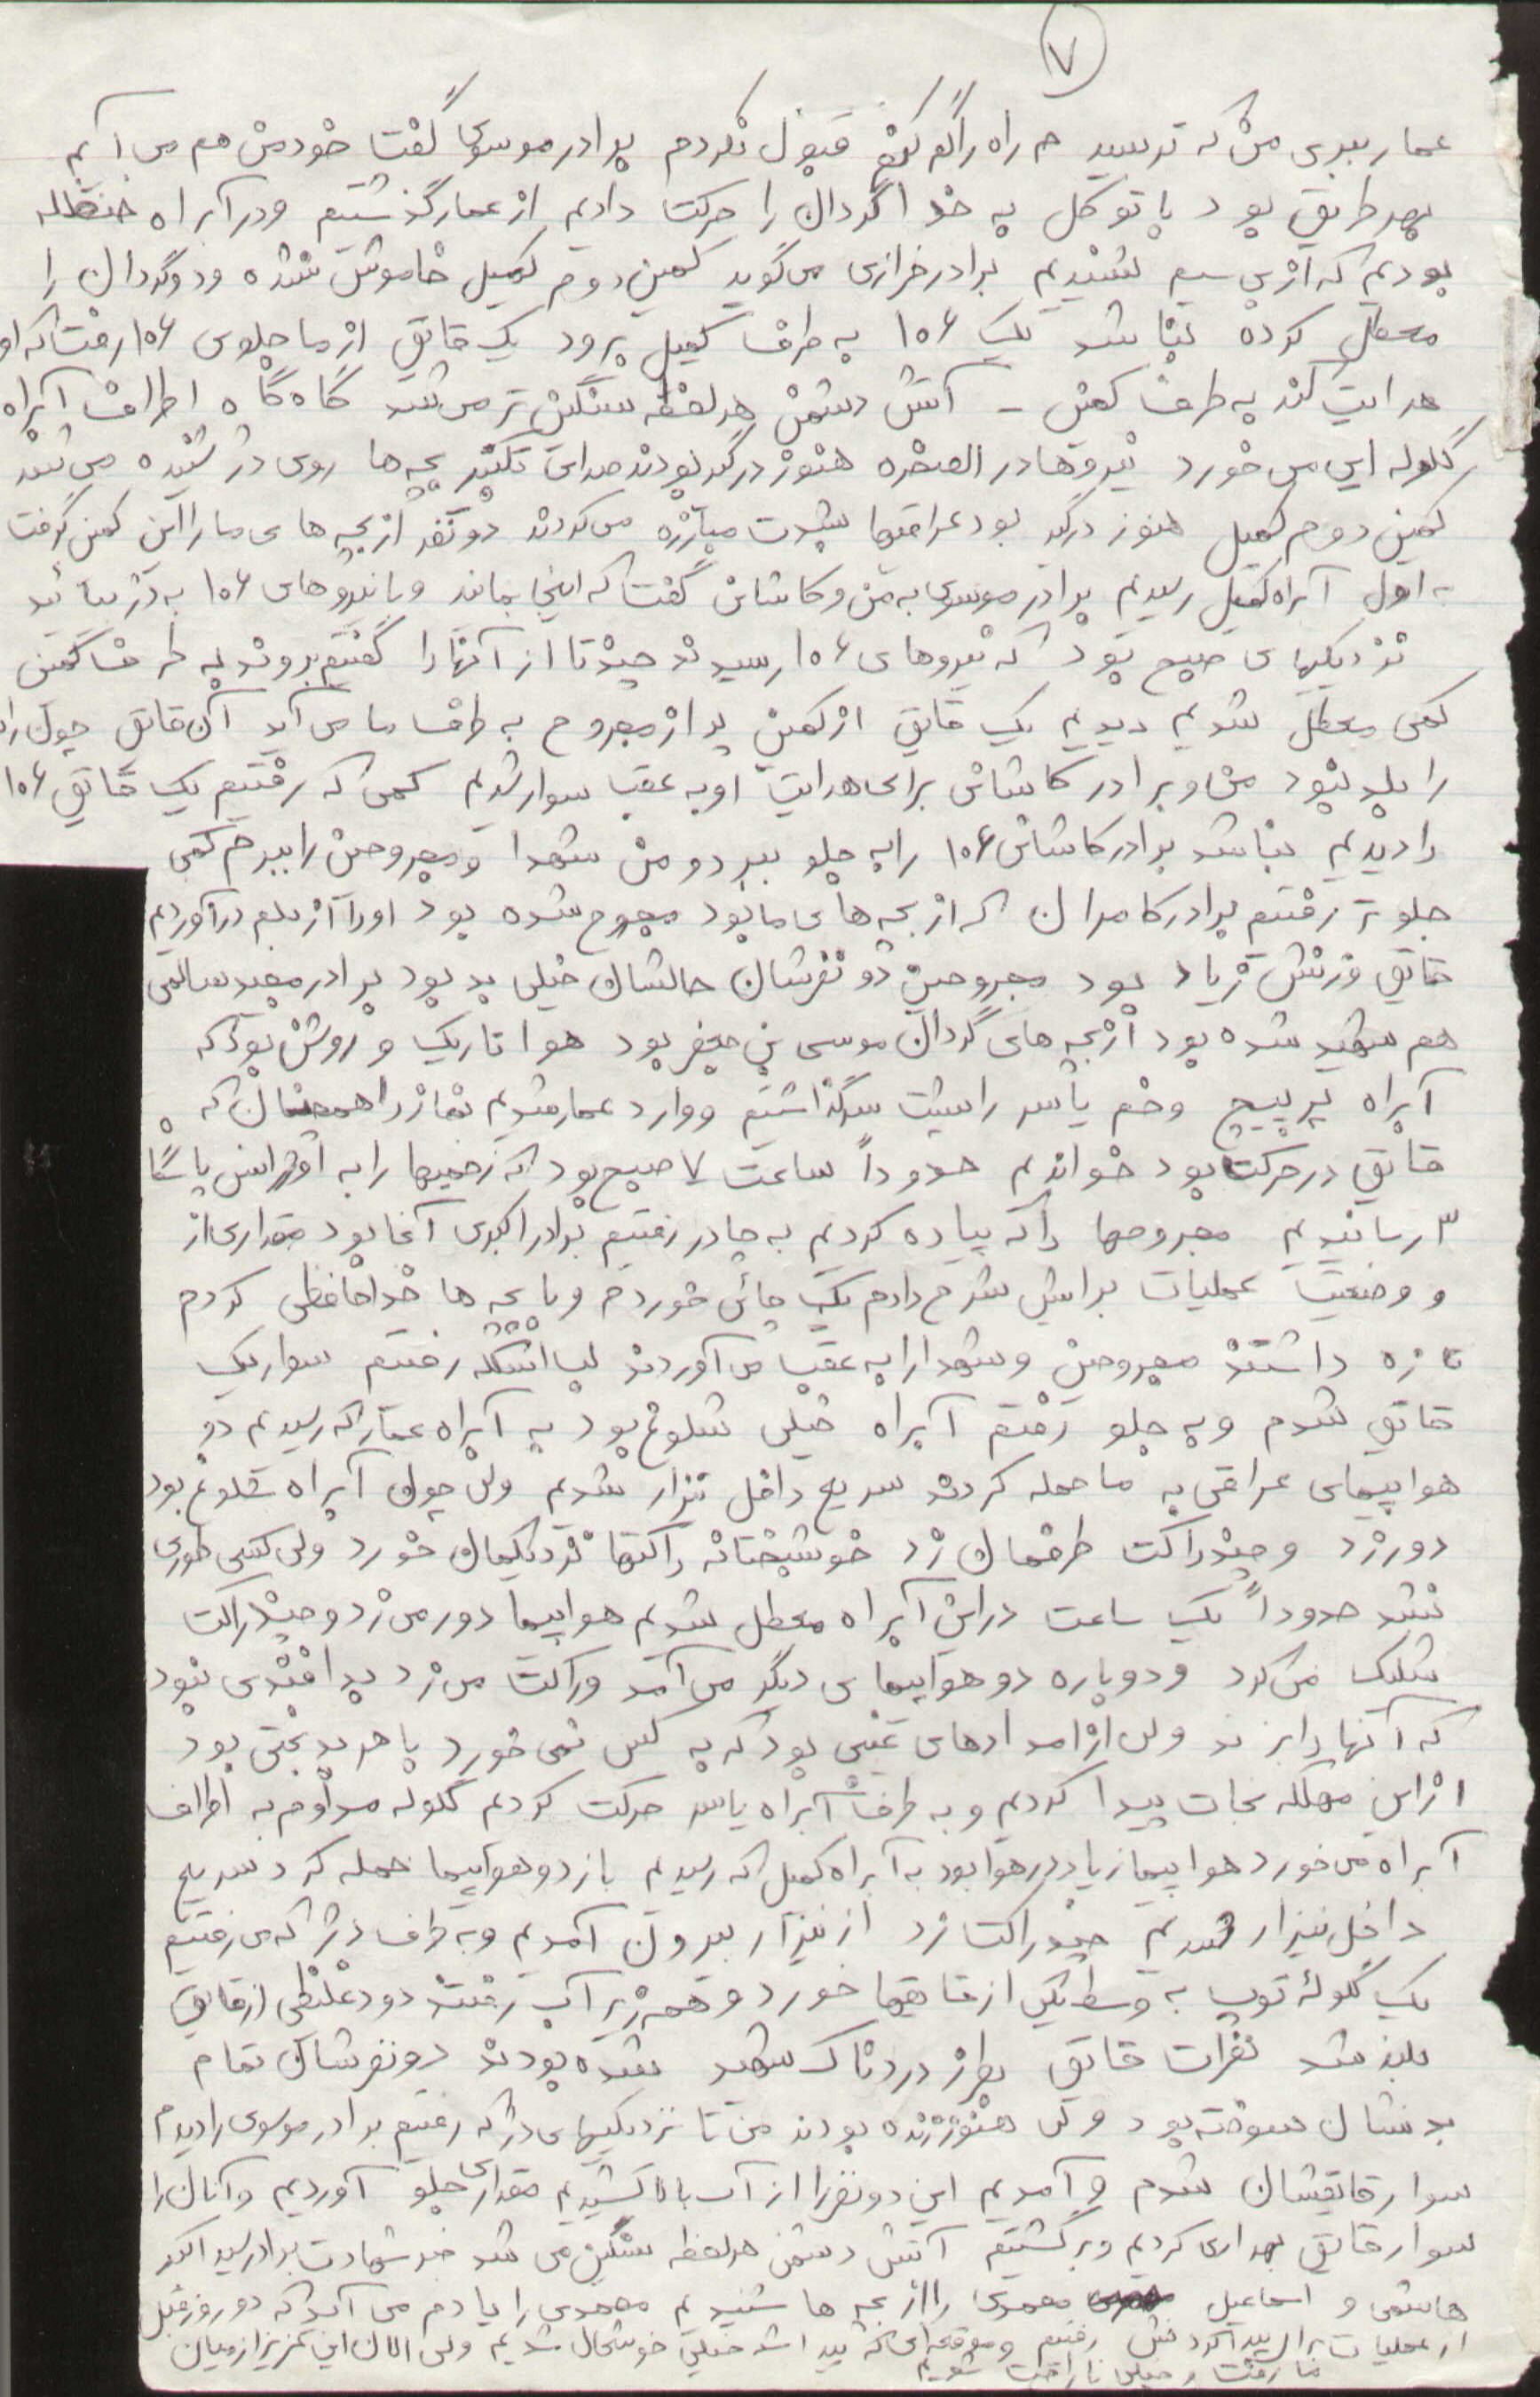 ۷
عمار ببری من که ترسیدم راه را گم کنم قبول نکردم برادر موسوی گفت خود من هم می آیم
بهر طریق بود با توکل به خدا گردان را حرکت دادیم از عمار گذشتیم و در آبراه حنظله
بودیم که از بی سیم شنیدیم برادر خرازی می گوید کمین دوم کمیل خاموش نشده و دو گردان را
معطل کرده بنا شد یک ۱۰۶ به طرف کمیل برود یک قایق از ما جلوی ۱۰۶ رفت که او
هدایت کند به طرف کمین - آتش دشمن هر لحظه سنگین تر می شد گاه گاه اطراف آبراه
گلوله ایی می خورد نیروها در الصخره هنوز درگیر بودند صدای تکبیر بچه ها روی دژ شنیده می شد
کمین دوم کمیل هنوز درگیر بود عراقیها بشدت مبارزه می کردند دو نفر از بچه های ما را این کمین گرفت
به اول آبراه کمیل رسیدیم برادر موسوی به من و کاشانی گفت که اینجا بمانید و با نیروهای ۱۰۶ به دژ بیائید
نزدیکیهای صبح بود که نیروهای ۱۰۶ رسیدند چندتا از آنها را گفتیم بروند به طرف کمین
کمی معطل شدیم دیدیم یک قایق از کمین پر از مجروح به طرف ما می آید آن قایق چون راه
را بلد نبود من و برادر کاشانی برای هدایت او به عقب سوار شدیم کمی که رفتیم یک قایق ۱۰۶
را دیدیم بنا شد برادر کاشانی ۱۰۶ را به جلو ببرد و من شهدا و مجروحین را ببرم کمی
جلوتر رفتیم برادر کامران که از بچه های ما بود مجروح شده بود او را از بلم درآوردیم
قایق وزنش زیاد بود مجروحین دو نفرشان حالشان خیلی بد بود برادر مجید سالمی
هم شهید شده بود از بچه های گردان موسی بن جعفر بود هوا تاریک و روشن بود که
آبراه پر پیچ و خم یاسر را پشت سر گذاشتیم و وارد عمار شدیم نماز را همچنان که
قایق در حرکت بود خواندم حدوداً ساعت ۷ صبح بود که زخمیها را به اورژانس پاسگاه
۳ رساندیم مجروحها را که پیاده کردیم به چادر رفتیم برادر اکبری آنجا بود مقداری از
و وضعیت عملیات برایش شرح دادم یک چائی خوردم و با بچه ها خداحافظی کردم
تازه داشتند مجروحین و شهدا را به عقب می آوردند لب اسکله رفتم سوار یک
قایق شدم و به جلو رفتم آبراه خیلی شلوغ بود به آبراه عمار که رسیدیم دو
هواپیمای عراقی به ما حمله کردند سریع داخل نیزار شدیم ولی چون آبراه شلوغ بود
دور زد و چند راکت طرفمان زد خوشبختانه راکتها نزدیکیمان خورد ولی کسی طوری
نشد حدوداً یک ساعت در این آبراه معطل شدیم هواپیما دور می زد و چند راکت
شلیک می کرد و دوباره دو هواپیمای دیگر می آمد و راکت می زد پدافندی نبود
که آنها را بزند ولی از امدادهای غیبی بود که به کسی نمی خورد با هر بدبختی بود
از این مهلکه نجات پیدا کردیم و به طرف آبراه یاسر حرکت کردیم گلوله مداوم به اطراف
آبراه می خورد هواپیما زیاد در هوا بود به آبراه کمیل که رسیدیم باز دو هواپیما حمله کرد سریع
داخل نیزار شدیم چند راکت زد از نیزار بیرون آمدیم و به طرف دژ که می رفتیم
یک گلوله توپ به وسط یکی از قایقها خورد و همه زیر آب رفتند دود غلیظی از قایق
بلند شد نفرات قایق بطرز دردناک شهید شده بودند دو نفرشان تمام
بدنشان سوخته بود ولی هنوز زنده بودند من تا نزدیکیهای دژ که رفتیم برادر موسوی را دیدم
سوار قایقشان شدم و آمدیم این دو نفر را از آب بالا کشیدیم مقداری جلو آوردیم و آنان را
سوار قایق بهداری کردیم و برگشتیم آتش دشمن هر لحظه سنگین می شد خبر شهادت برادر سید اکبر
هاشمی و اسماعیل محمدی را از بچه ها شنیدیم محمدی را یادم می آید که دو روز قبل
از عملیات برا پیدا کردنش رفتیم و موقعی که پیدا شد خیلی خوشحال شدیم ولی الان این عزیز از میان
ما رفت و خیلی ناراحت شدیم